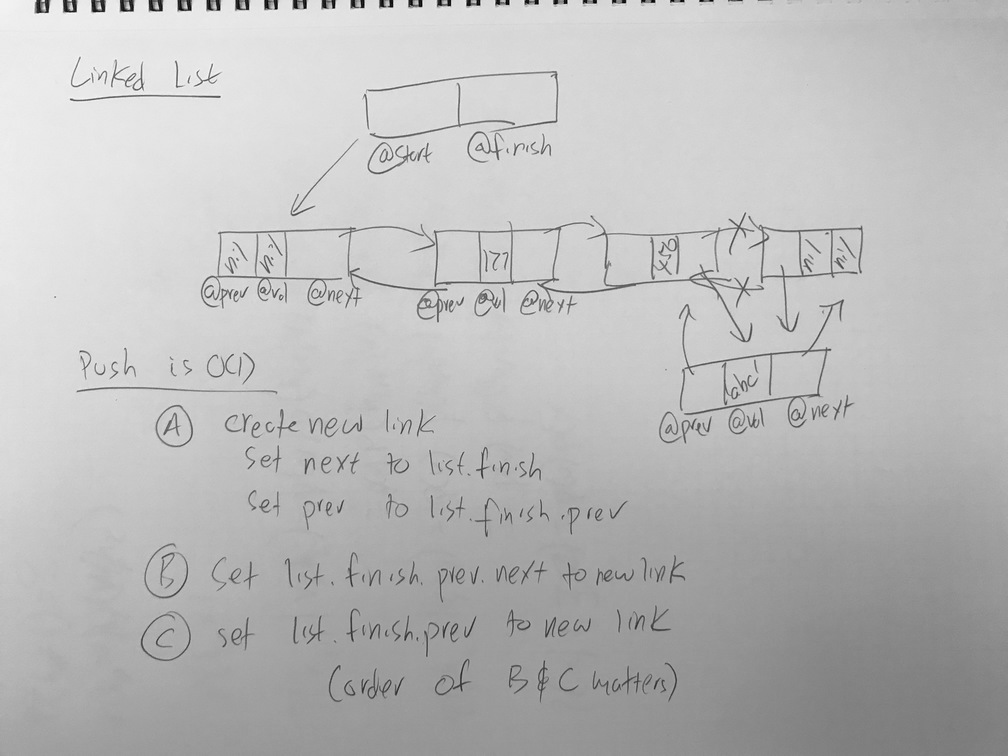 Linked List
@start @finish
nil nil
121
nil nil
@prev @val @next
@prev @val @next
'abc'
@prev @val @next
Push is O(1)
A create new link
set next to list.finish
set prev to list.finish.prev
B set list.finish.prev.next to new link
C set list.finish.prev to new link
(order of B & C matters)